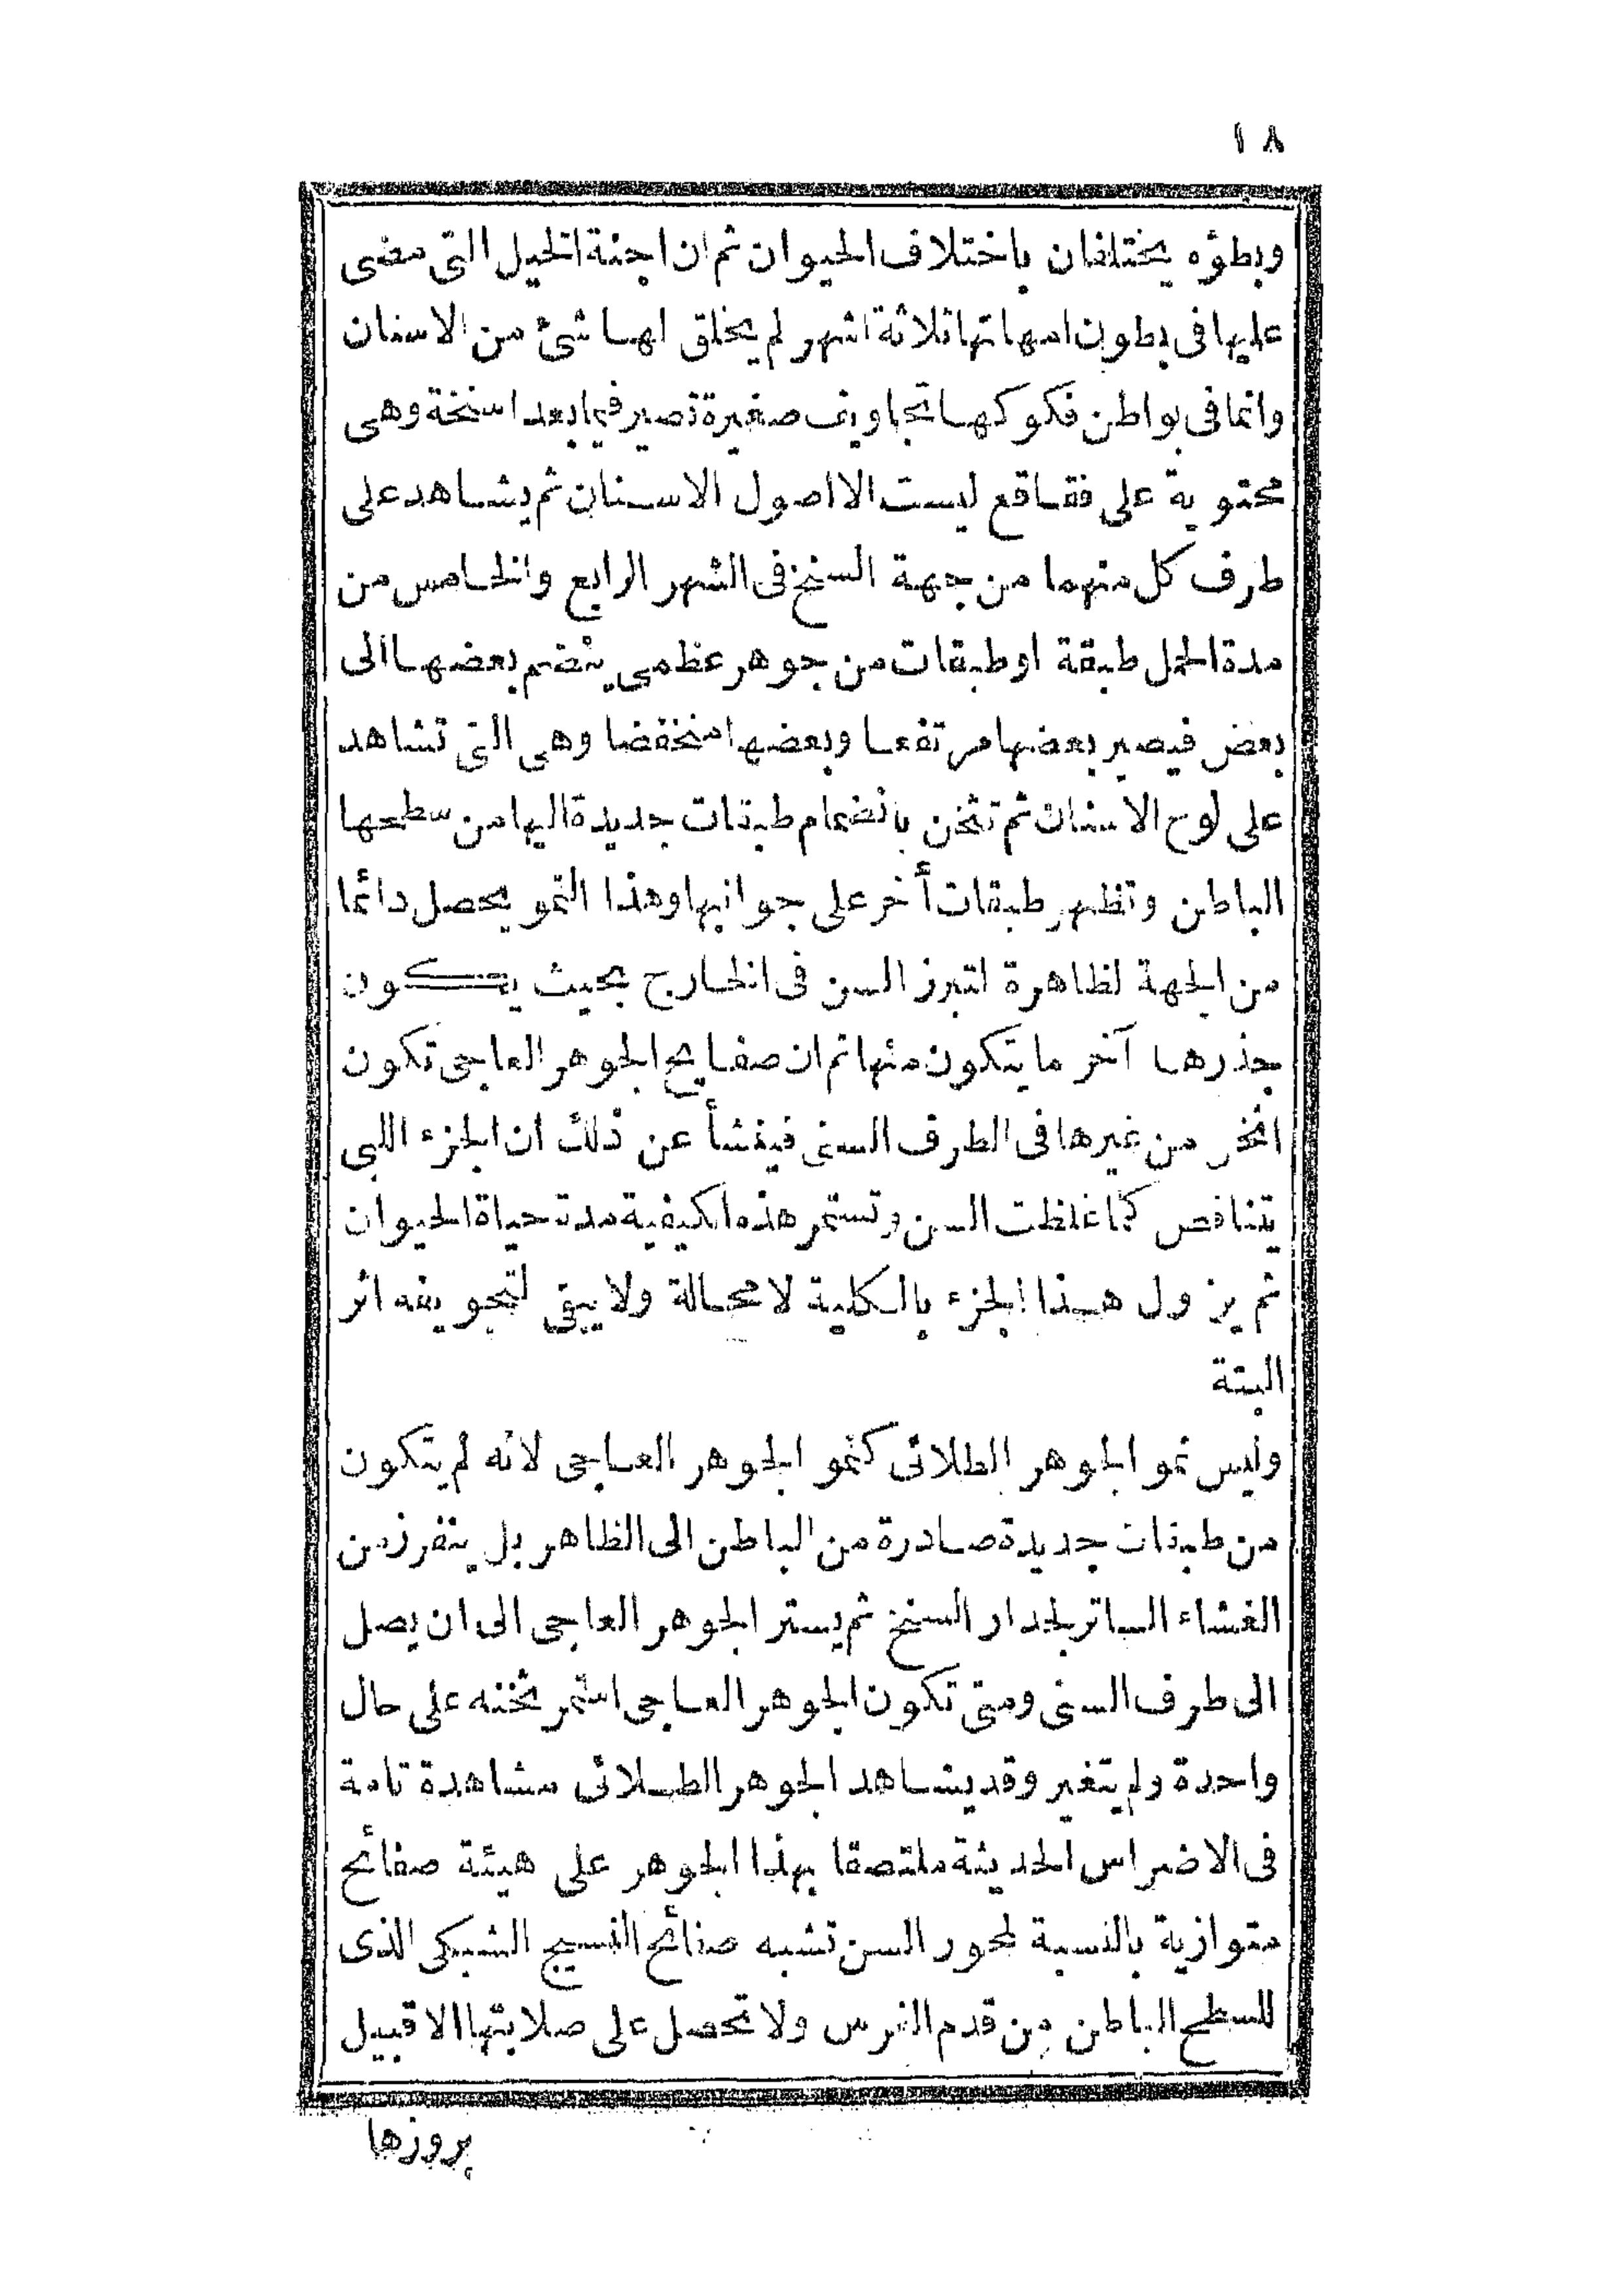 ١٨
وبطؤه يختلفان باختلاف الحيوان ثم ان اجنة الخيل التى مضى
عليها فى بطون امهاتها ثلاثة اشهر لم يخلق لها شئ من الاسنان
وانما فى بواطن فكوكها تجاويف صغيرة تصير فيما بعد اسنخة وهى
محتوية على فقاقع ليست الا اصول الاسنان ثم يشاهد على
طرف كل منهما من جهة السنخ فى الشهر الرابع والخامس من
مدة الحمل طبقة او طبقات من جوهر عظمى ينضم بعضها الى
بعض فيصير بعضها مرتفعا وبعضها منخفضا وهى التى تشاهد
على لوح الاسنان ثم تثخن بانضمام طبقات جديدة اليها من سطحها
الباطن وتظهر طبقات أخر على جوانبها وهذا النمو يحصل دائما
من الجهة لظاهرة لتبرز السن فى الخارج بحيث يكون
جذرها آخر ما يتكون منها ثم ان صفايح الجوهر العاجى تكون
اثخن من غيرها فى الطرف السنى فينشأ عن ذلك ان الجزء اللبى
يتناقص كما غلظت السن وتستمر هذه الكيفية مدة حياة الحيوان
ثم يزول هذا الجزء بالكلية لا محالة ولا يبقى لتجويفه اثر
البتة
وليس نمو الجوهر الطلائى كنمو الجوهر العاجى لانه لم يتكون
من طبقات جديدة صادرة من الباطن الى الظاهر بل يتفرز من
الغشاء الساتر لجدار السنخ ثم يستر الجوهر العاجى الى ان يصل
الى طرف السنى ومتى تكون الجوهر العاجى استمر ثخنه على حال
واحدة ولم يتغير وقد يشاهد الجوهر الطلائى مشاهدة تامة
فى الاضراس الحديثة ملتصقا بهذا الجوهر على هيئة صفائح
متوازية بالنسبة لمحور السن تشبه صفائح النسيج الشبكى الذى
للسطح الباطن من قدم الفرس ولا تحصل على صلابتها الا قبيل
بروزها